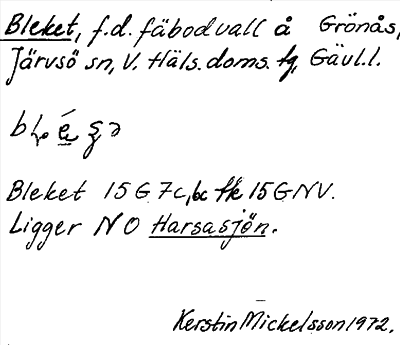 Bleket, f.d. fäbodvall å Grönås,
Järvsö sn, V. Häls. doms. tg, Gävl.l.
Bleket 15G 7c, bc fk 15GNV.
Ligger NO Harsasjön.
Kerstin Mickelsson 1972.